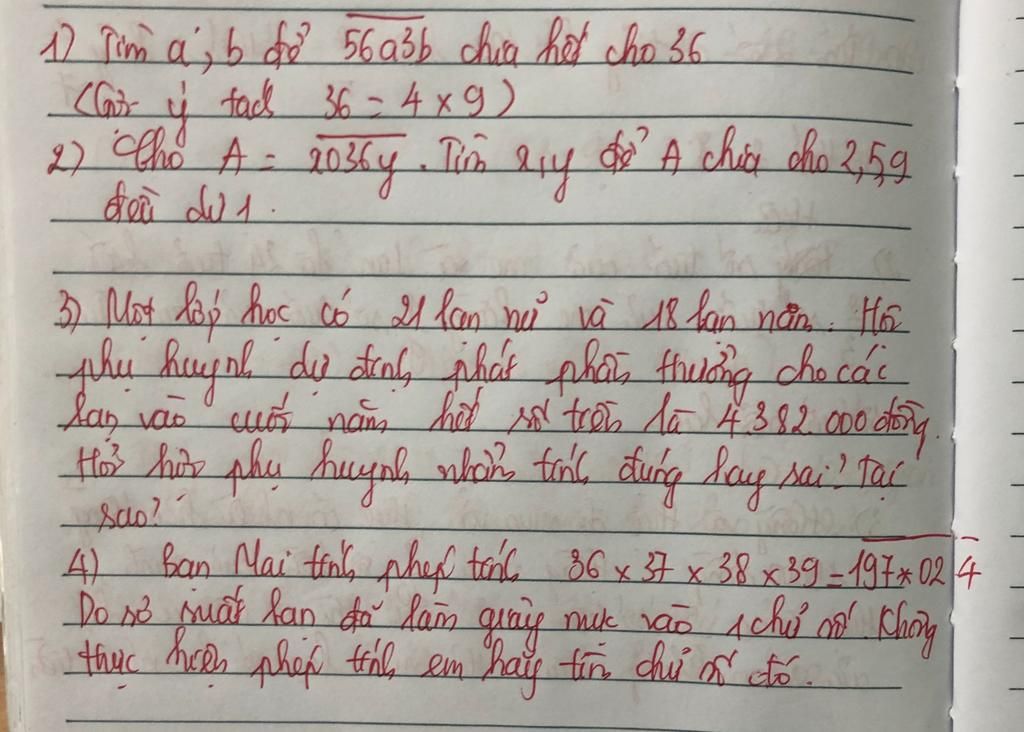 1) Tìm a, b để 56a3b chia hết cho 36
(Gợi ý tách 36 = 4 × 9)
2) Cho A = x036y. Tìm x, y để A chia cho 2, 5, 9
đều dư 1.
3) Một lớp học có 21 bạn nữ và 18 bạn nam. Hội
phụ huynh dự định phát phần thưởng cho các
bạn vào cuối năm hết số tiền là 4.382.000 đồng.
Hỏi hội phụ huynh nhẩm tính đúng hay sai? Tại
sao?
4) Bạn Mai tính phép tính 36 × 37 × 38 × 39 = 197*024
Do sơ suất bạn đã làm giây mực vào 1 chữ số. Không
thực hiện phép tính em hãy tìm chữ số đó.